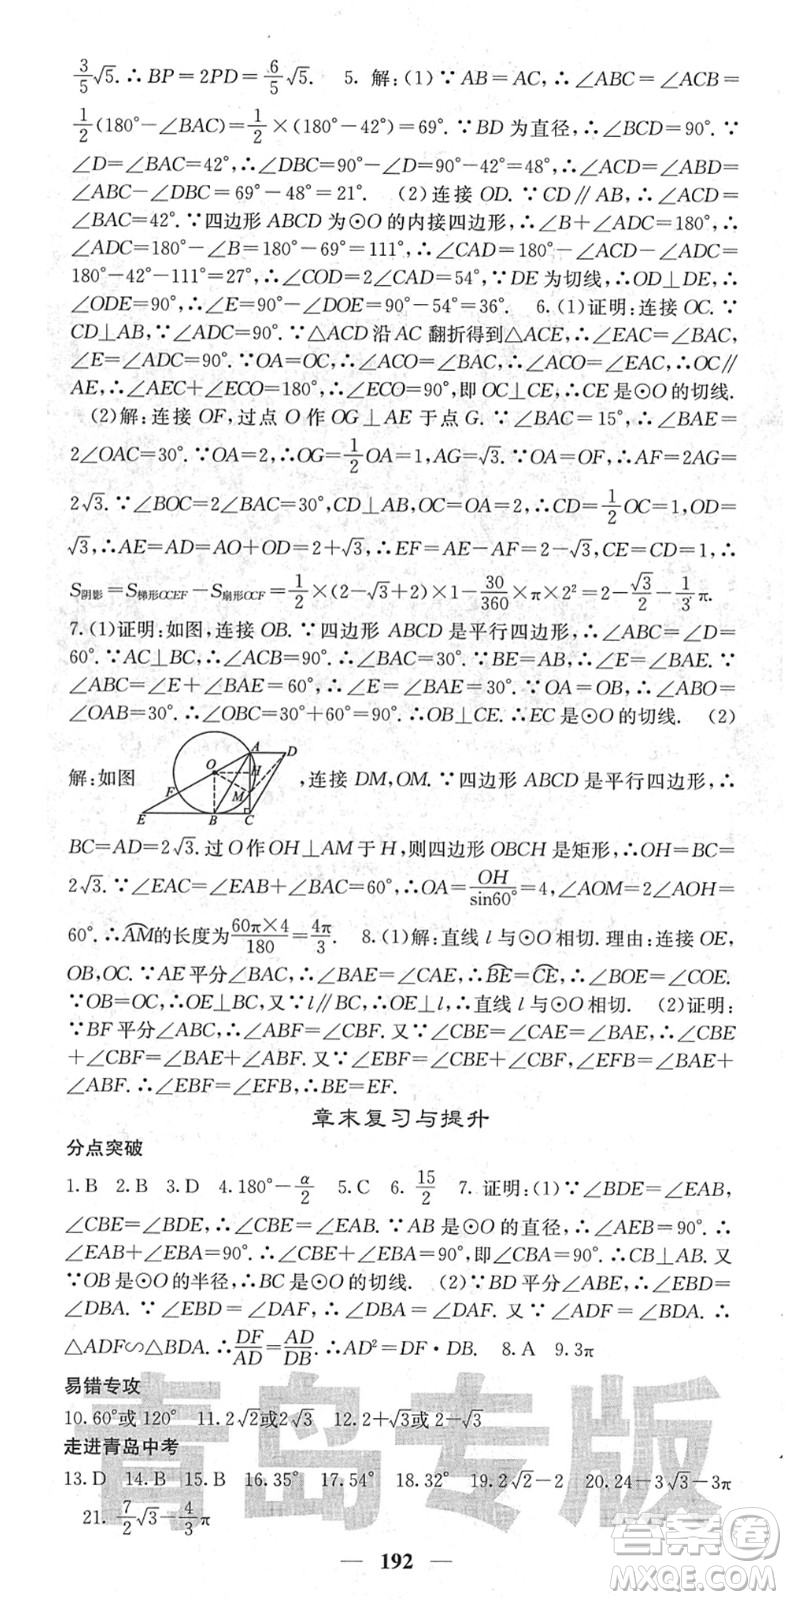 3/5√5.∴BP=2PD=6/5√5.  5. 解:(1)∵AB=AC,∴∠ABC=∠ACB=
1/2(180°-∠BAC)=1/2×(180°-42°)=69°.∵BD为直径,∴∠BCD=90°.∵
∠D=∠BAC=42°,∴∠DBC=90°-∠D=90°-42°=48°,∴∠ACD=∠ABD=
∠ABC-∠DBC=69°-48°=21°.  (2)连接OD.∵CD∥AB,∴∠ACD=
∠BAC=42°.∵四边形ABCD为⊙O的内接四边形,∴∠B+∠ADC=180°,∴
∠ADC=180°-∠B=180°-69°=111°,∴∠CAD=180°-∠ACD-∠ADC=
180°-42°-111°=27°,∴∠COD=2∠CAD=54°,∵DE为切线,∴OD⊥DE,∴
∠ODE=90°,∴∠E=90°-∠DOE=90°-54°=36°.  6.(1)证明:连接OC.∵
CD⊥AB,∴∠ADC=90°.∵△ACD沿AC翻折得到△ACE,∴∠EAC=∠BAC,
∠E=∠ADC=90°.∵OA=OC,∴∠ACO=∠BAC,∴∠ACO=∠EAC,∴OC∥
AE,∴∠AEC+∠ECO=180°,∴∠ECO=90°,即OC⊥CE,∴CE是⊙O的切线.
(2)解:连接OF,过点O作OG⊥AE于点G.∵∠BAC=15°,∴∠BAE=
2∠OAC=30°.∵OA=2,∴OG=1/2OA=1,AG=√3.∵OA=OF,∴AF=2AG=
2√3.∵∠BOC=2∠BAC=30°,CD⊥AB,OC=OA=2,∴CD=1/2OC=1,OD=
√3,∴AE=AD=AO+OD=2+√3,∴EF=AE-AF=2-√3,CE=CD=1,∴
S阴影=S梯形OCEF-S扇形OCF=1/2×(2-√3+2)×1-30/360×π×2²=2-√3/2-1/3π.
7.(1)证明:如图,连接OB.∵四边形ABCD是平行四边形,∴∠ABC=∠D=
60°.∵AC⊥BC,∴∠ACB=90°,∴∠BAC=30°.∵BE=AB,∴∠E=∠BAE.∵
∠ABC=∠E+∠BAE=60°,∴∠E=∠BAE=30°.∵OA=OB,∴∠ABO=
∠OAB=30°.∴∠OBC=30°+60°=90°,∴OB⊥CE.∴EC是⊙O的切线.  (2)
解:如图 O A D H F M E B C ,连接DM,OM.∵四边形ABCD是平行四边形,∴
BC=AD=2√3.过O作OH⊥AM于H,则四边形OBCH是矩形,∴OH=BC=
2√3.∵∠EAC=∠EAB+∠BAC=60°,∴OA=OH/sin60°=4,∠AOM=2∠AOH=
60°.∴AM⌒的长度为60π×4/180=4π/3.  8.(1)解:直线l与⊙O相切.理由:连接OE,
OB,OC.∵AE平分∠BAC,∴∠BAE=∠CAE,∴BE⌒=CE⌒,∴∠BOE=∠COE.
∵OB=OC,∴OE⊥BC.又∵l∥BC,∴OE⊥l,∴直线l与⊙O相切.  (2)证明:
∵BF平分∠ABC,∴∠ABF=∠CBF.又∵∠CBE=∠CAE=∠BAE,∴∠CBE
+∠CBF=∠BAE+∠ABF.又∵∠EBF=∠CBE+∠CBF,∠EFB=∠BAE+
∠ABF.∴∠EBF=∠EFB,∴BE=EF.
章末复习与提升
分点突破
1.B  2.B  3.D  4.180°-α/2  5.C  6.15/2  7.证明:(1)∵∠BDE=∠EAB,
∠CBE=∠BDE,∴∠CBE=∠EAB.∵AB是⊙O的直径,∴∠AEB=90°.∴
∠EAB+∠EBA=90°,∴∠CBE+∠EBA=90°,即∠CBA=90°.∴CB⊥AB.又
∵OB是⊙O的半径,∴BC是⊙O的切线.  (2)∵BD平分∠ABE,∴∠EBD=
∠DBA.∵∠EBD=∠DAF,∴∠DBA=∠DAF.又∵∠ADF=∠BDA,∴
△ADF∽△BDA.∴DF/AD=AD/DB.∴AD²=DF·DB.  8.A  9.3π
易错专攻
10.60°或120°  11.2√2或2√3  12.2+√3或2-√3
走进青岛中考
13.D  14.B  15.B  16.35°  17.54°  18.32°  19.2√2-2  20.24-3√3-3π
21.7/2√3-4/3π
青岛专版
答案卷
192